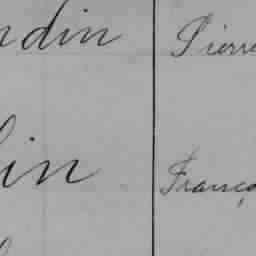 ndin Pierre
lin França